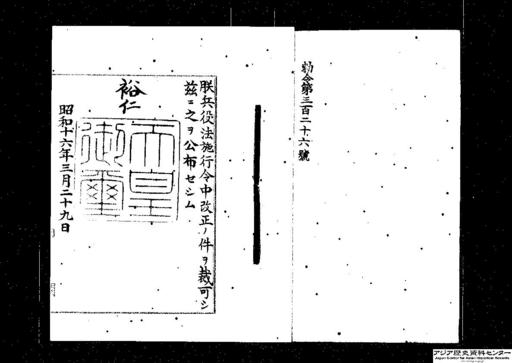 勅令第三百二十六號
朕兵役法施行令中改正ノ件ヲ裁可シ
茲ニ之ヲ公布セシム
裕仁
天皇
御璽
昭和十六年三月二十九日
アジア歴史資料センター
Japan Center for Asian Historical Records